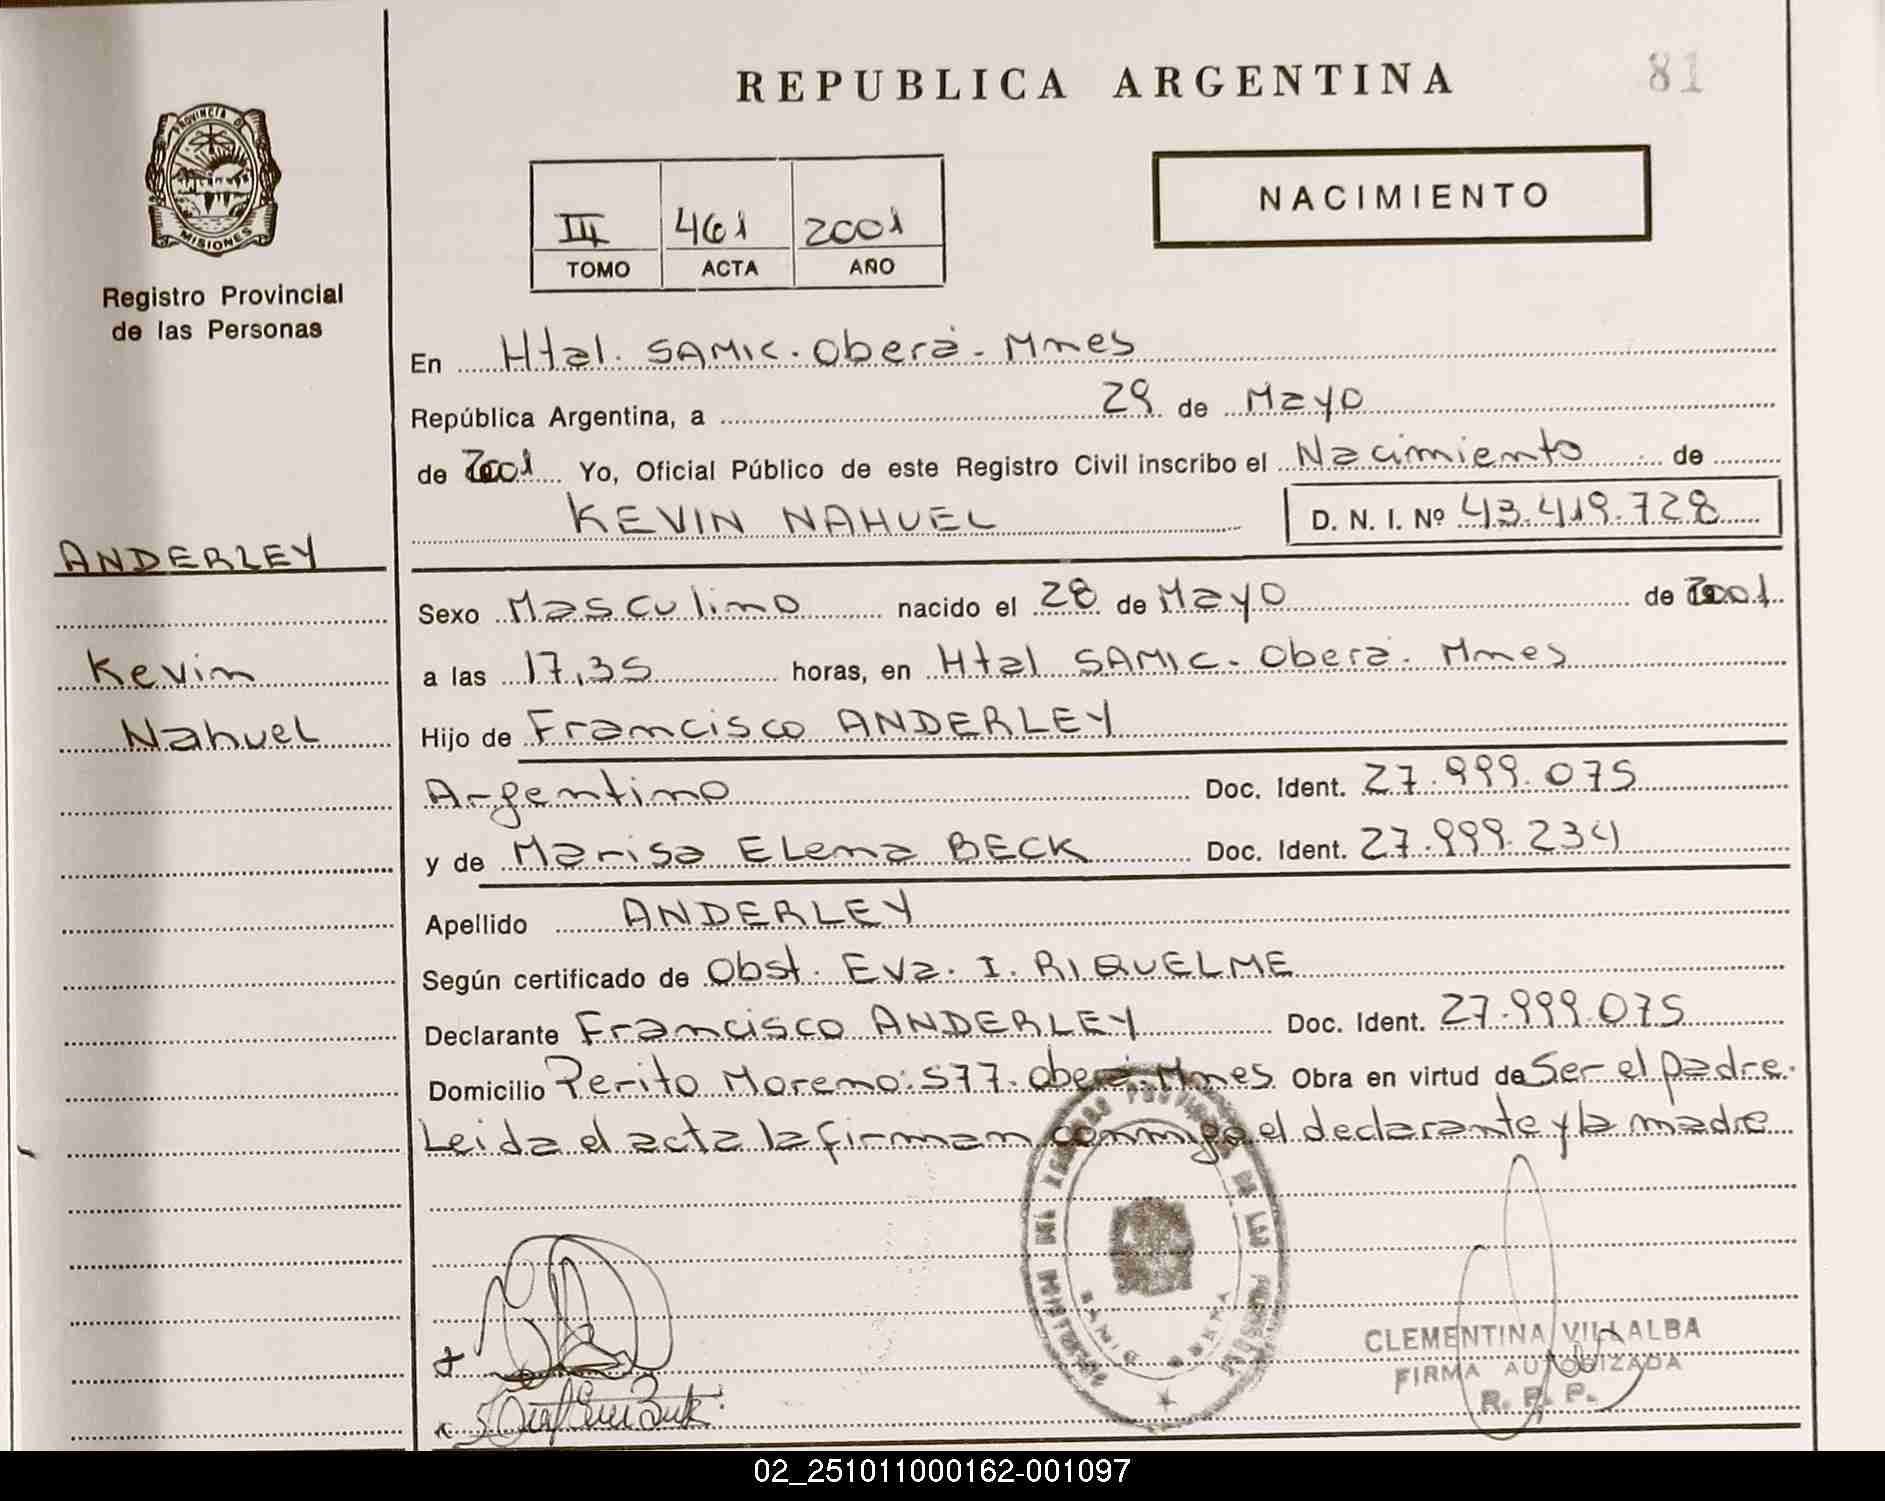 REPUBLICA ARGENTINA
81
PROVINCIA DE
MISIONES
Registro Provincial
de las Personas
NACIMIENTO
III 461 2001
TOMO ACTA AÑO
En Htal. SAMIC. Oberá. Mnes
República Argentina, a 29 de Mayo
de 2001 Yo, Oficial Público de este Registro Civil inscribo el Nacimiento de
KEVIN NAHUEL D. N. I. Nº 43.419.728
ANDERLEY
Kevin
Nahuel
Sexo Masculino nacido el 28 de Mayo de 2001
a las 17,35 horas, en Htal SAMIC. Oberá. Mnes
Hijo de Francisco ANDERLEY
Argentino Doc. Ident. 27.999.075
y de Marisa Elena BECK Doc. Ident. 27.999.234
Apellido ANDERLEY
Según certificado de Obst. Eva. I. RIQUELME
Declarante Francisco ANDERLEY Doc. Ident. 27.999.075
Domicilio Perito Moreno. 577. Oberá. Mnes Obra en virtud de Ser el padre.
Leida el acta la firman conmigo el declarante y la madre
CLEMENTINA VILLALBA
FIRMA AUTORIZADA
R. P. P.
02_251011000162-001097